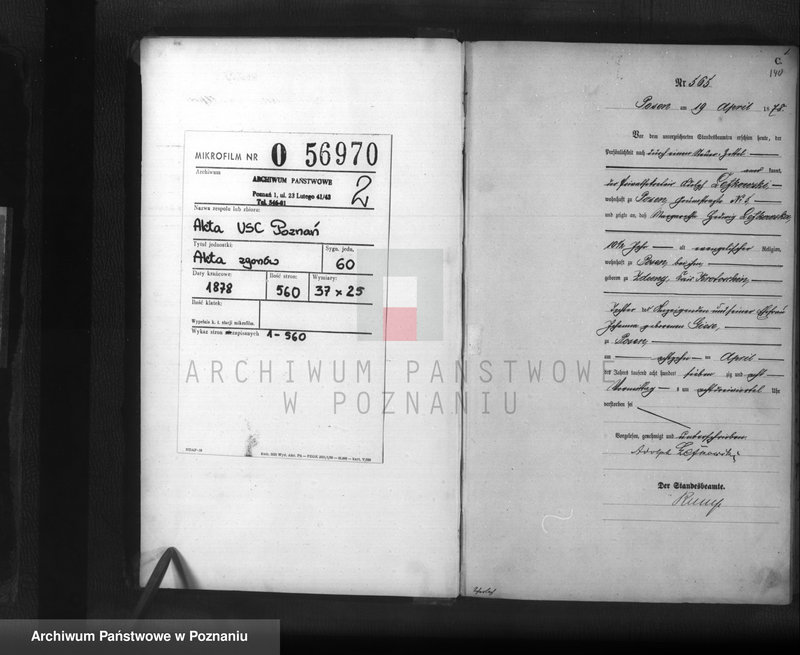 MIKROFILM NR 0 56970
Archiwum
ARCHIWUM PAŃSTWOWE
Poznań 1, ul. 23 Lutego 41/43
Tel. 546-01
2
Nazwa zespołu lub zbioru:
Akta USC Poznań
Tytuł jednostki:
Akta zgonów
Sygn. jedn.
60
Daty krańcowe:
1878
Ilość stron:
560
Wymiary:
37 x 25
Ilość klatek:
Wypełnia k. t. stacji mikrofilm.
Wykaz stron niezapisanych 1-560
C.
140
Nr. 565
Posen am 19 April 1878.
Vor dem unterzeichneten Standesbeamten erschien heute, der
Persönlichkeit nach durch einen Steuer-Zettel
kannt,
der Privatsekretair Adolph
wohnhaft zu Posen № 6
und zeigte an, daß Margarethe Hedwig
10¼ Jahr alt evangelischer Religion,
wohnhaft zu Posen bei ihm
geboren zu Zduny, Kreis Krotoschin,
Tochter des Anzeigenden und seiner Ehefrau
Johanna geborenen Giese,
zu Posen
am achtzehn ten April
des Jahres tausend acht hundert sieben zig und acht
Vormittags um acht dreiviertel Uhr
verstorben sei
Vorgelesen, genehmigt und unterschrieben
Adolph
Der Standesbeamte.
Rump
ARCHIWUM PAŃSTWOWE
W POZNANIU
Archiwum Państwowe w Poznaniu